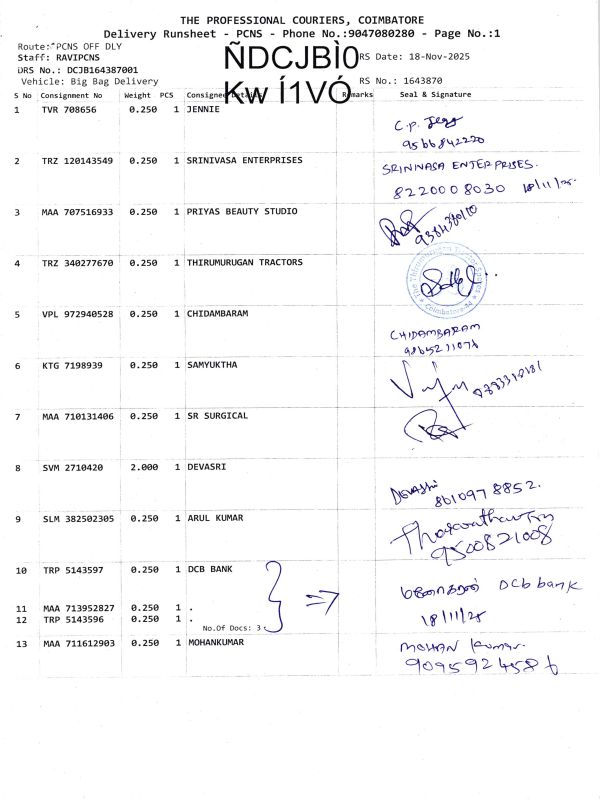 THE PROFESSIONAL COURIERS, COIMBATORE
Delivery Runsheet - PCNS - Phone No.:9047080280 - Page No.:1
Route: PCNS OFF DLY
Staff: RAVIPCNS
ÑDCJBÌ0
RS Date: 18-Nov-2025
DRS No.: DCJB164387001
Vehicle: Big Bag Delivery
Kw Í1VÓ
RS No.: 1643870
S No Consignment No Weight PCS Consignee Details Remarks Seal & Signature
1 TVR 708656 0.250 1 JENNIE
C.P.
9566842220
2 TRZ 120143549 0.250 1 SRINIVASA ENTERPRISES
SRINIVASA ENTERPRISES.
8220008030 18/11/25
3 MAA 707516933 0.250 1 PRIYAS BEAUTY STUDIO
4 TRZ 340277670 0.250 1 THIRUMURUGAN TRACTORS
Coimbatore
5 VPL 972940528 0.250 1 CHIDAMBARAM
CHIDAMBARAM
9865271076
6 KTG 7198939 0.250 1 SAMYUKTHA
7 MAA 710131406 0.250 1 SR SURGICAL
8 SVM 2710420 2.000 1 DEVASRI
Devashi
8610978852.
9 SLM 382502305 0.250 1 ARUL KUMAR
9500821008
10 TRP 5143597 0.250 1 DCB BANK
மனோகரன் DCb bank
11 MAA 713952827 0.250 1 .
12 TRP 5143596 0.250 1 .
18/11/25
No.Of Docs: 3
13 MAA 711612903 0.250 1 MOHANKUMAR
MOHAN Kumar.
9095924586